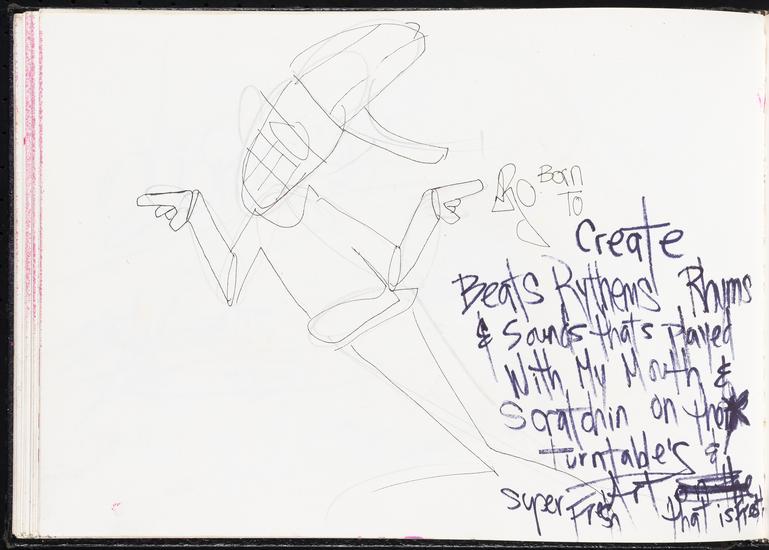 Born
To
Create
Beats Rythems Rhyms
& Sounds thats played
With My Mouth &
Scratchin on tha
turntable's &
Art
Super Fresh that is Fresh